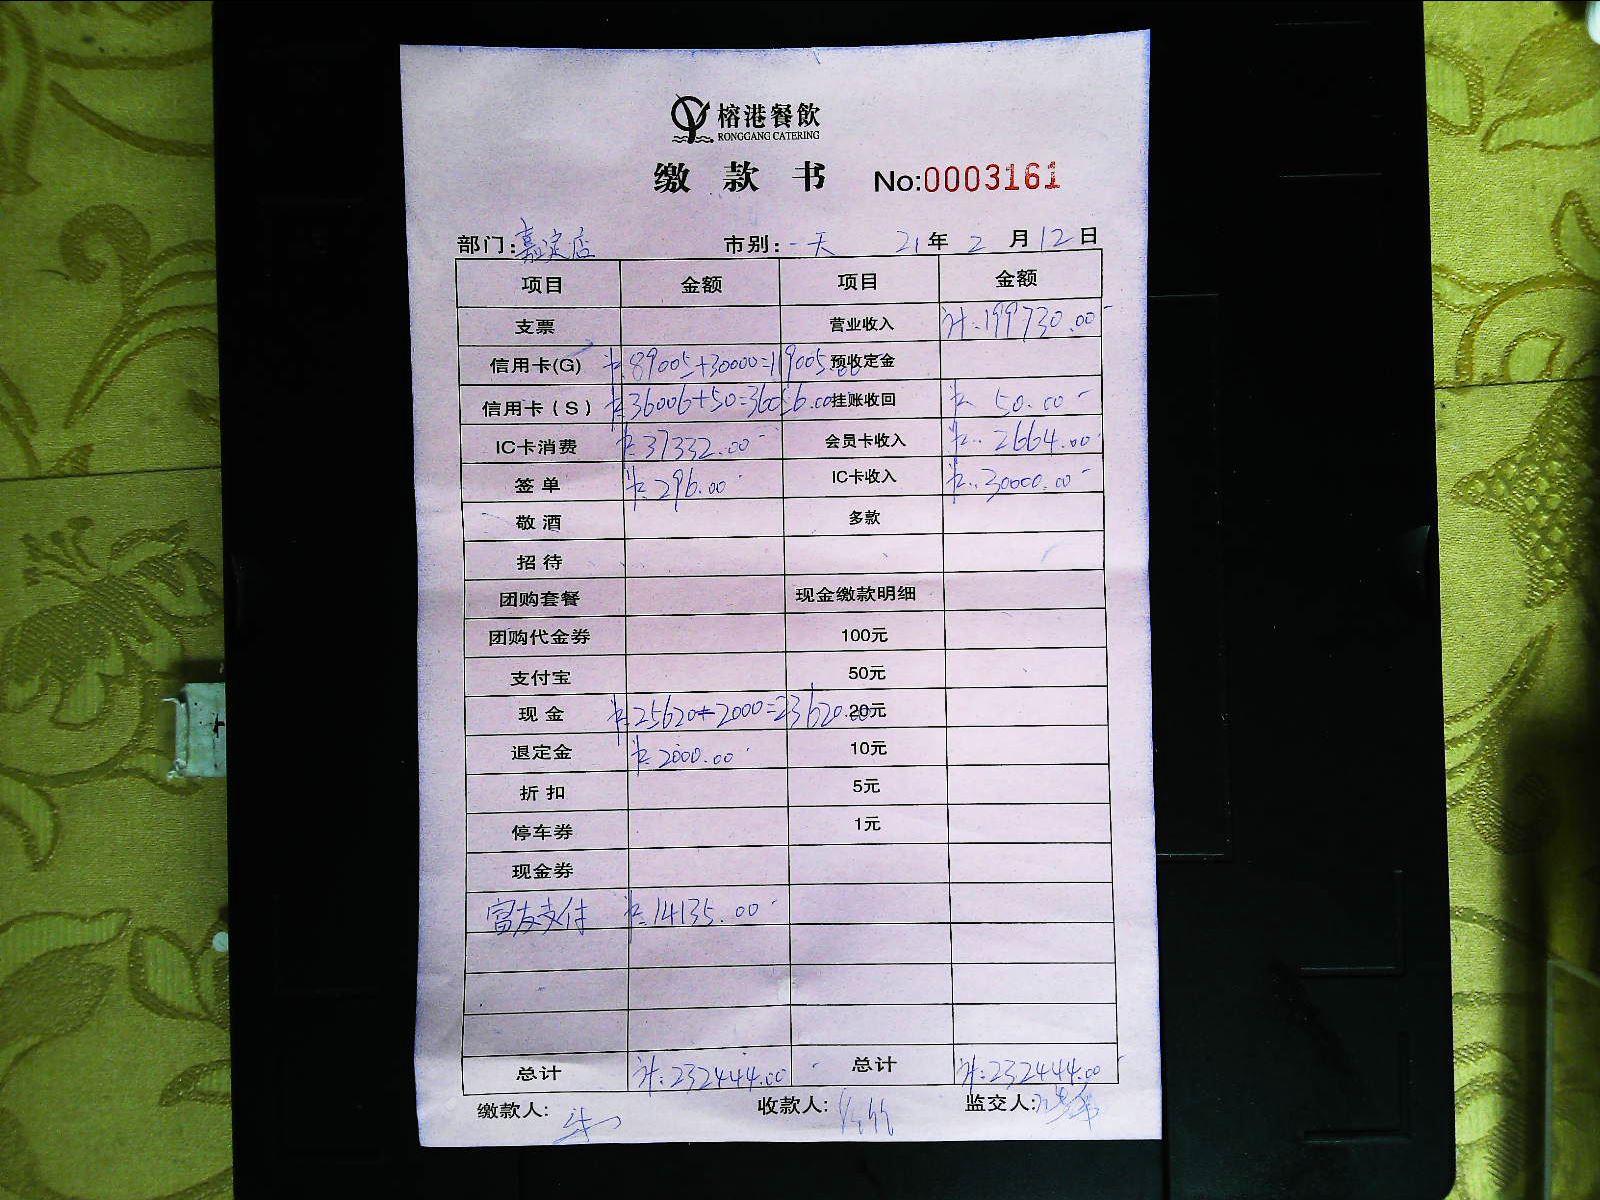 榕港餐飲
RONGGANG CATERING
缴 款 书 No:0003161
部门:嘉定店 市别:一天 21年 2月12日
项目 金额 项目 金额
支票 营业收入 计:199730.00
信用卡(G) 卡:89005+30000=119005.00 预收定金
信用卡(S) 卡:36006+50=36056.00 挂账收回 卡:50.00
IC卡消费 卡:37332.00 会员卡收入 卡:2664.00
签 单 卡:296.00 IC卡收入 卡:30000.00
敬 酒 多款
招 待
团购套餐 现金缴款明细
团购代金券 100元
支付宝 50元
现 金 卡:25620-2000=23620.00 20元
退定金 卡:2000.00 10元
折 扣 5元
停车券 1元
现金券
富友支付 卡:14135.00
总计 计:232444.00 总计 计:232444.00
缴款人: 收款人: 监交人: